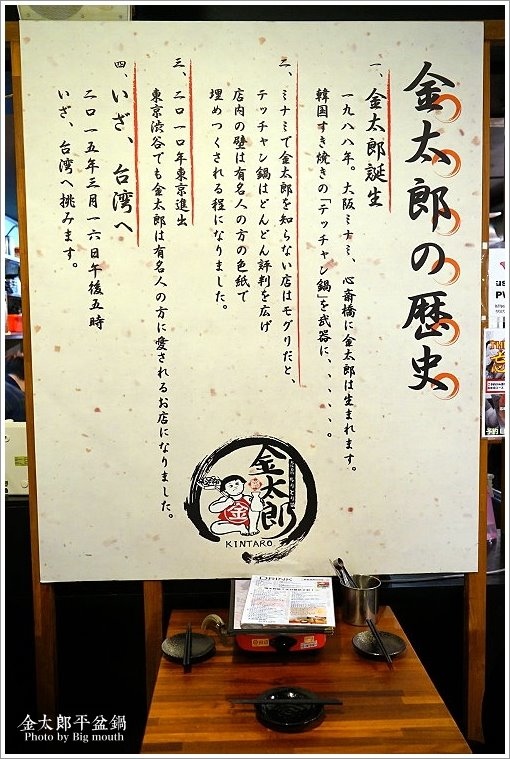 金太郎の歴史
一、金太郎誕生
一九八八年。大阪ミナミ、心斎橋に金太郎は生まれます。
韓国すき焼きの「テッチャン鍋」を武器に、、、、、、。
二、ミナミで金太郎を知らない店はモグリだと、
テッチャン鍋はどんどん評判を広げ
店内の壁は有名人の方の色紙で
埋めつくされる程になりました。
三、二〇一〇年東京進出
東京渋谷でも金太郎は有名人の方に愛されるお店になりました。
四、いざ、台湾へ
二〇一五年三月一六日午後五時
いざ、台湾へ挑みます。
金太郎
金
KINTARO.
DRINK
金太郎平盆鍋
Photo by Big mouth